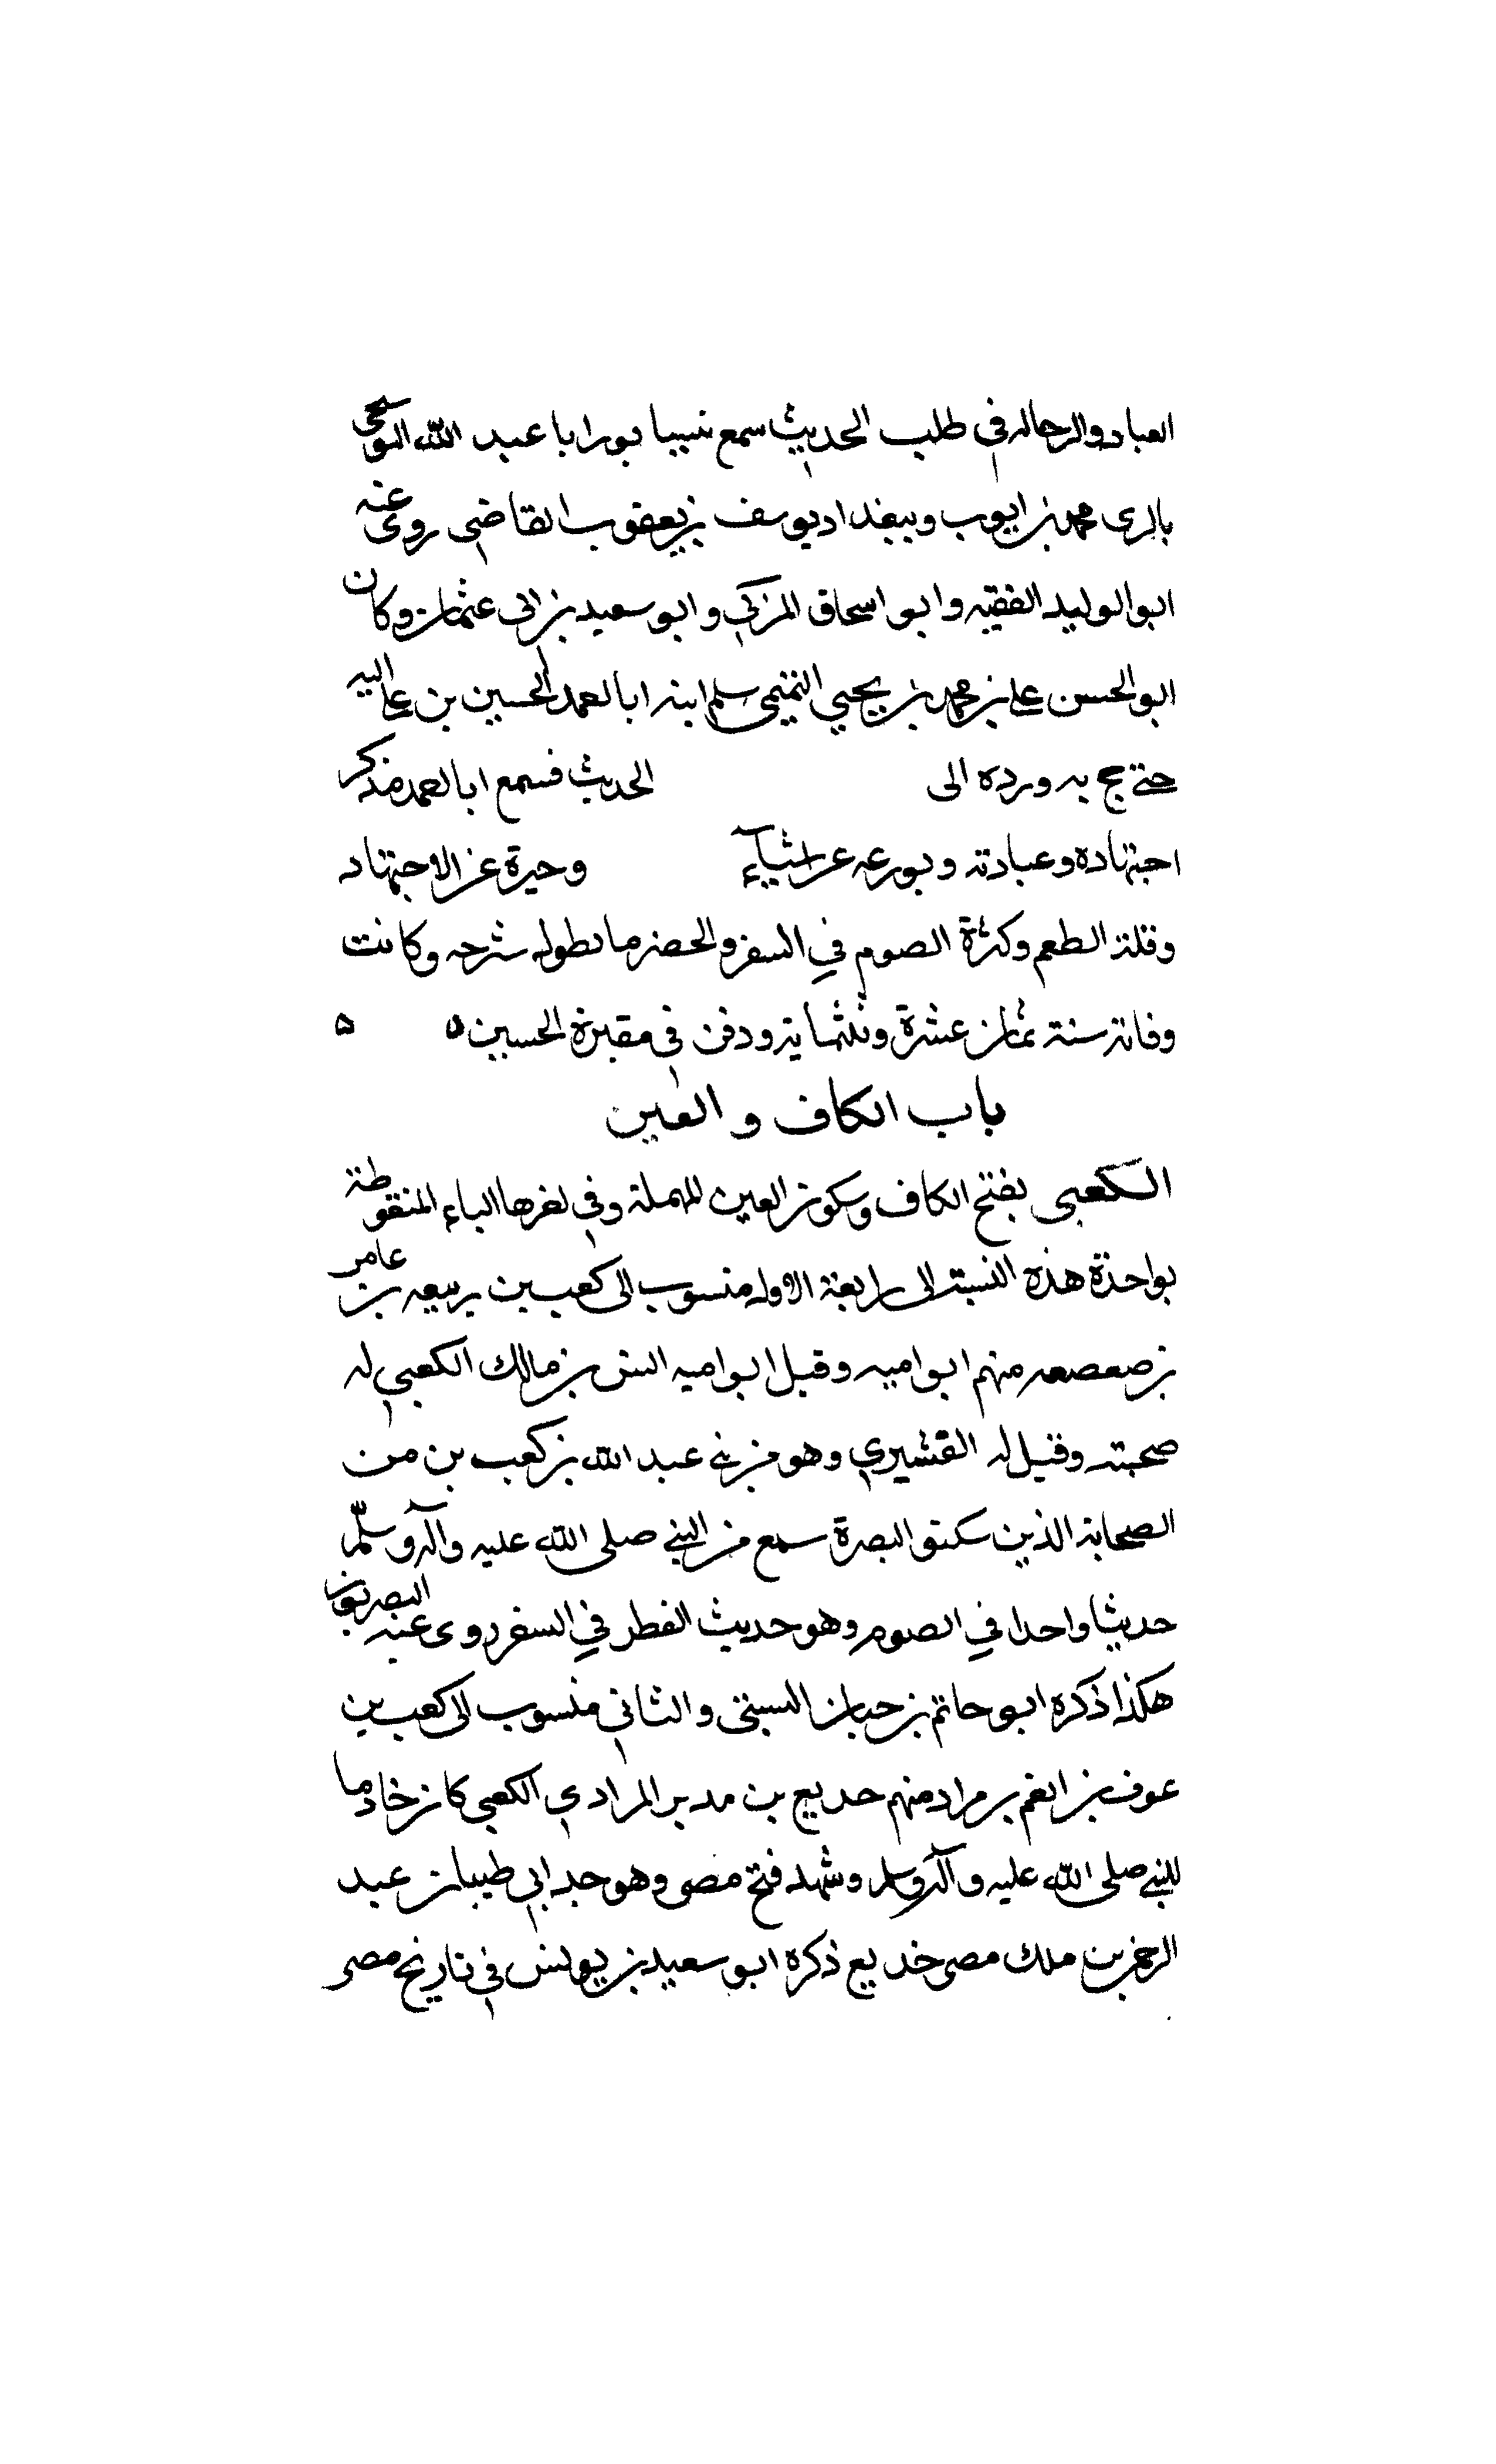 العباد والرحاله في طلب الحديث سمع بنيسابور ابا عبد الله البوسنجى
بالرى محمد بن ايوب وببغداد يوسف بن يعقوب القاضي روى عنه
ابو الوليد الفقيه وابو اسحاق المزكي وابو سعيد بن ابى عثمان وكان
ابو الحسن على بن محمد بن يحيي التميمى سلم ابنه ابا احمد الحسين بن على اليه
حتى حج به ورده الى الحديث فسمع ابا احمد يذكر
اجتهاده وعبادته وتورعه عن اشياء وحيرة عن الاجتهاد
وقلة الطعم وكثرة الصوم في السفر والحضر ما يطول شرحه وكانت
وفاته سنة ثمان عشرة وثلثماية ودفن في مقبرة الحسين ه ه
باب الكاف والعين
الكعبى بفتح الكاف وسكون العين المهملة وفي اخرها الباء المنقوطة
بواحدة هذه النسبة الى اربعة الاول منسوب الى كعب بن ربيعه بن عامر
بن صعصعه منهم ابو اميه وقيل ابو اميه انس بن مالك الكعبي له
صحبته وقيل له القشيري وهو من بني عبد الله بن كعب بن من
الصحابة الذين سكنو البصرة سمع من النبي صلى الله عليه وآله وسلم
حديثا واحدا في الصوم وهو حديث الفطر في السفر روى عنه البصريون
هكذا ذكره ابو حاتم بن حبان البستى والثاني منسوب الى كعب بن
عوف بن انعم بن مراد منهم حديج بن مدبر المرادي الكعبي كان خادما
للنبي صلى الله عليه وآله وسلم وشهد فتح مصر وهو جد ابي ظبيان عبد
الرحمن بن ملك مصر خديع ذكره ابو سعيد بن يونس في تاريخ مصر